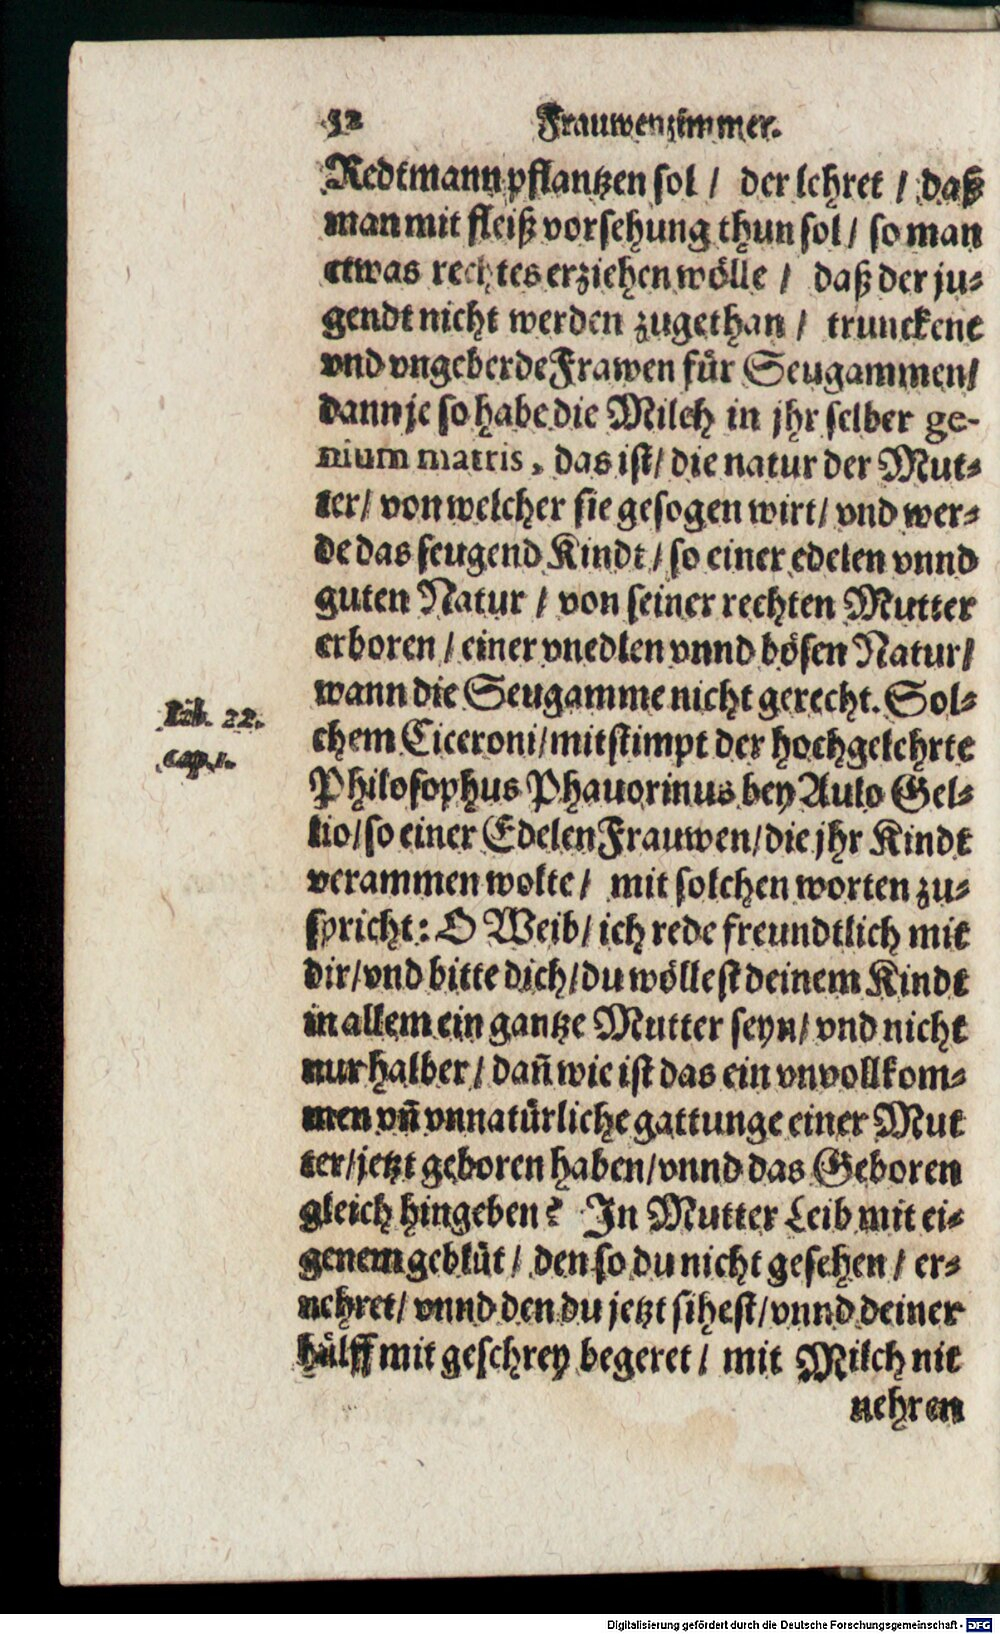 52 Frauwenzimmer.
Redtmann pflantzen sol / der lehret / daß
man mit fleiß vorsehung thun sol / so man
etwas rechtes erziehen wölle / daß der ju⸗
gendt nicht werden zugethan / trunckene
vnd vngeberde Frawen für Seugammen /
dann je so habe die Milch in jhr selber ge-
nium matris, das ist / die natur der Mut⸗
ter / von welcher sie gesogen wirt / vnd wer⸗
de das seugend Kindt / so einer edelen vnnd
guten Natur / von seiner rechten Mutter
erboren / einer vnedlen vnnd bösen Natur /
wann die Seugamme nicht gerecht. Sol⸗
Lib. 22.
cap. 1.
chem Ciceroni / mitstimpt der hochgelehrte
Philosophus Phauorinus bey Aulo Gel⸗
lio / so einer Edelen Frauwen / die jhr Kindt
verammen wolte / mit solchen worten zu⸗
spricht: O Weib / ich rede freundtlich mit
dir / vnd bitte dich / du wöllest deinem Kindt
in allem ein gantze Mutter seyn / vnd nicht
nur halber / dañ wie ist das ein vnvollkom⸗
men vñ vnnatürliche gattunge einer Mut
ter / jetzt geboren haben / vnnd das Geboren
gleich hingeben? In Mutter Leib mit ei⸗
genem geblüt / den so du nicht gesehen / er⸗
nehret / vnnd den du jetzt sihest / vnnd deiner
hülff mit geschrey begeret / mit Milch nit
nehren
Digitalisierung gefördert durch die Deutsche Forschungsgemeinschaft - DFG